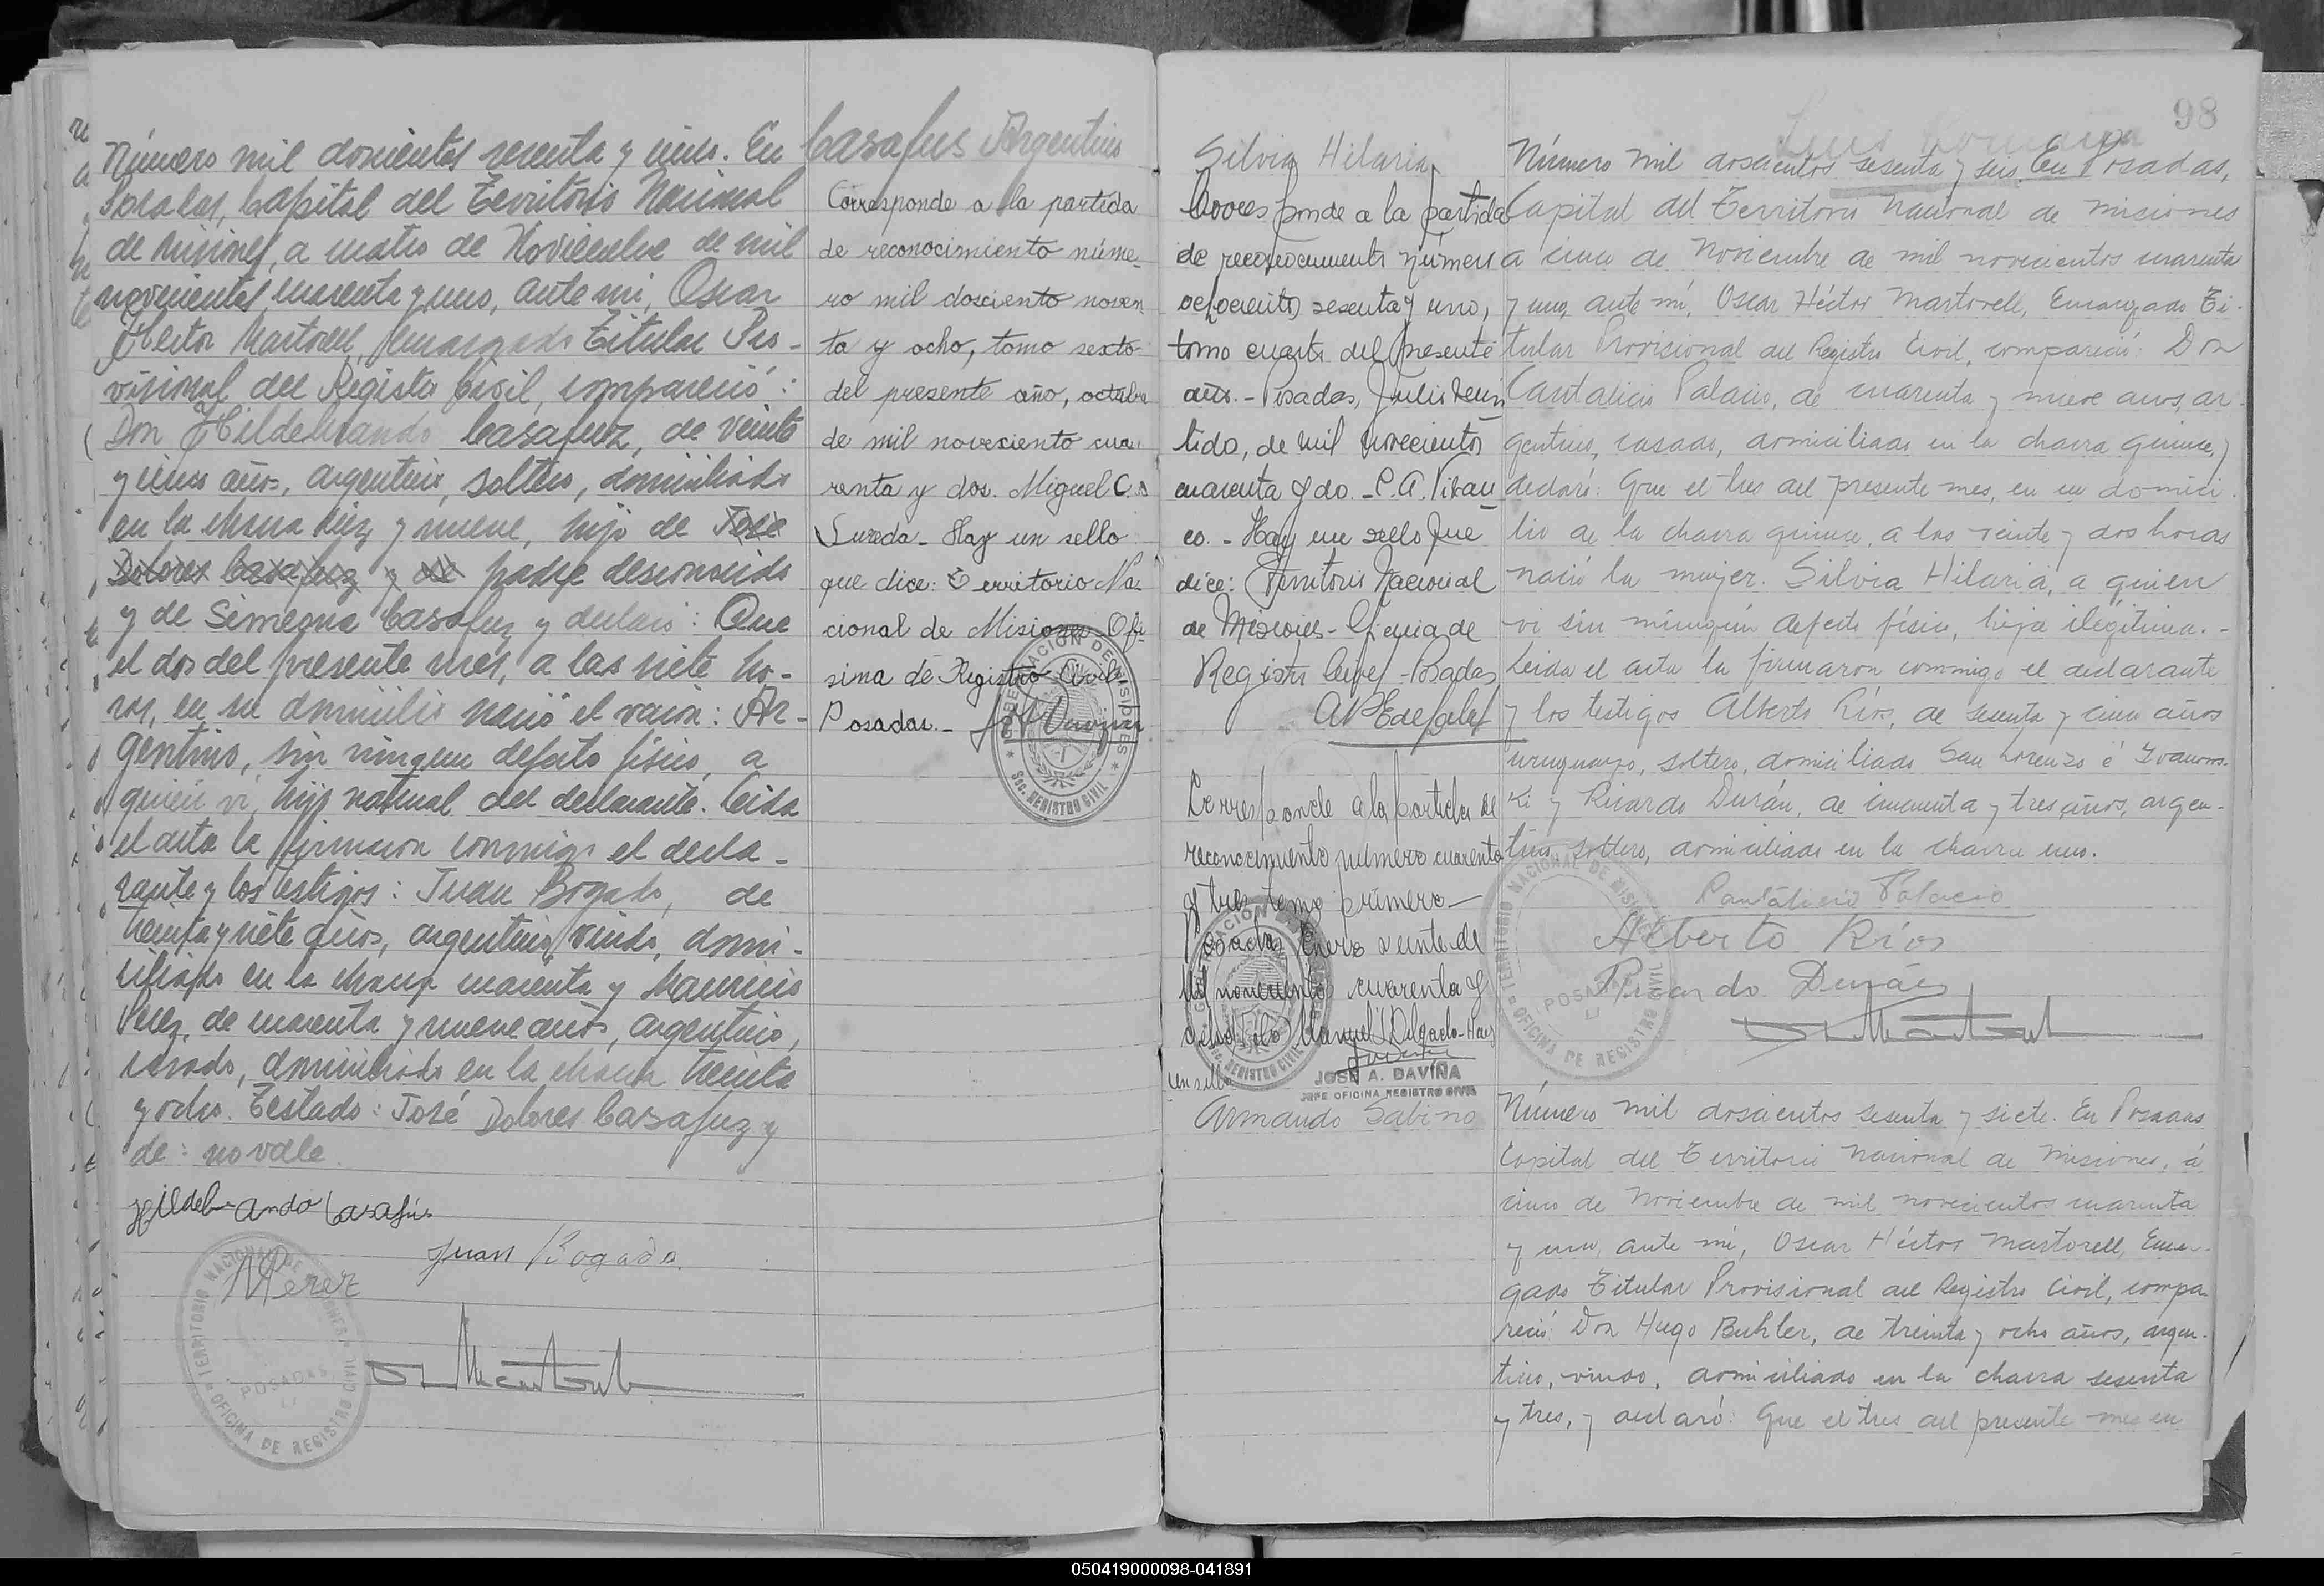 Número mil doscientos sesenta y cinco. En
Posadas, Capital del Territorio Nacional
de Misiones, a cuatro de Noviembre de mil
novecientos cuarenta y uno, ante mi, Oscar
Héctor Martorell, Encargado Titular Pro-
visional del Registro Civil, compareció:
Don Hildebrando Casafuz, de veinte
y cinco años, argentino, soltero, domiciliado
en la chacra diez y nueve, hijo de José
Dolores Casafuz y de padre desconocido
y de Simeona Casafuz y declaró: Que
el dos del presente mes, a las siete ho-
ras, en su domicilio nació el varón: Ar-
gentino, sin ningun defecto físico, a
quien vi, hijo natural del declarante. Leida
el acta la firmaron conmigo el decla-
rante y los testigos: Juan Bogado, de
treinta y siete años, argentino, viudo, domi-
ciliado en la chacra cuarenta y Mauricio
Perez, de cuarenta y nueve años, argentino,
casado, domiciliado en la chacra treinta
y ocho. Testado: José Dolores Casafuz y
de: no vale
Hildebrando Casafús
Juan Bogado.
MPerez
TERRITORIO NACIONAL DE MISIONES
POSADAS
OFICINA DE REGISTRO CIVIL
Casafus Argentino
Corresponde a la partida
de reconocimiento núme-
ro mil dosciento noven
ta y ocho, tomo sexto
del presente año, octubre
de mil noveciento cua
renta y dos. Miguel C.
Lureda - Hay un sello
que dice: Territorio Na
cional de Misiones - Ofi-
sina de Registro Civil
Posadas. -
GOBERNACIÓN DE MISIONES
SEC. REGISTRO CIVIL
98
Silvia Hilaria
Corresponde a la partida
de reconocimiento número
ochocientos sesenta y uno,
tomo cuarto del presente
año. - Posadas, Julio
de mil novecientos
cuarenta y do. - P. A.
co. - Hay un sello que
dice: Territorio Nacional
de Misiones - Oficina de
Registro Civil - Posadas
Corresponde a la partida de
reconocimiento número cuarenta
y tres tomo primero -
Posadas Enero veinte de
mil noveciento cuarenta y
ocho Manuel J Delgado - Hay
un sello
GOBERNACIÓN DE MISIONES
SEC. REGISTRO CIVIL
JOSE A. DAVIÑA
JEFE OFICINA REGISTRO CIVIL
Armando Sabino
Número mil doscientos sesenta y seis. En Posadas,
Capital del Territorio Nacional de Misiones
a cinco de Noviembre de mil novecientos cuarenta
y uno, ante mí, Oscar Héctor Martorell, Encargado Ti-
tular Provisional del Registro Civil, compareció: Don
Cantalicio Palacio, de cuarenta y nueve años, ar-
gentino, casado, domiciliado en la chacra quince, y
declaró: Que el tres del presente mes, en su domici-
lio de la chacra quince, a las veinte y dos horas
nació la mujer: Silvia Hilaria, a quien
vi sin ningún defecto físico, hija ilegítima. -
Leida el acta la firmaron conmigo el declarante
y los testigos Alberto Ríos, de sesenta y cinco años
uruguayo, soltero, domiciliado San Lorenzo é Ivanows-
ki y Ricardo Durán, de cincuenta y tres años, argen-
tino, soltero, domiciliado en la chacra uno.
Cantalicio Palacio
Alberto Ríos
Ricardo Durán
TERRITORIO NACIONAL DE MISIONES
POSADAS
OFICINA DE REGISTRO CIVIL
Número mil doscientos sesenta y siete. En Posadas
Capital del Territorio Nacional de Misiones, á
cinco de Noviembre de mil novecientos cuarenta
y uno, ante mí, Oscar Héctor Martorell, Encar-
gado Titular Provisional del Registro Civil, compa-
reció: Don Hugo Buhler, de treinta y ocho años, argen-
tino, viudo, domiciliado en la chacra sesenta
y tres, y declaró: Que el tres del presente mes en
050419000098-041891